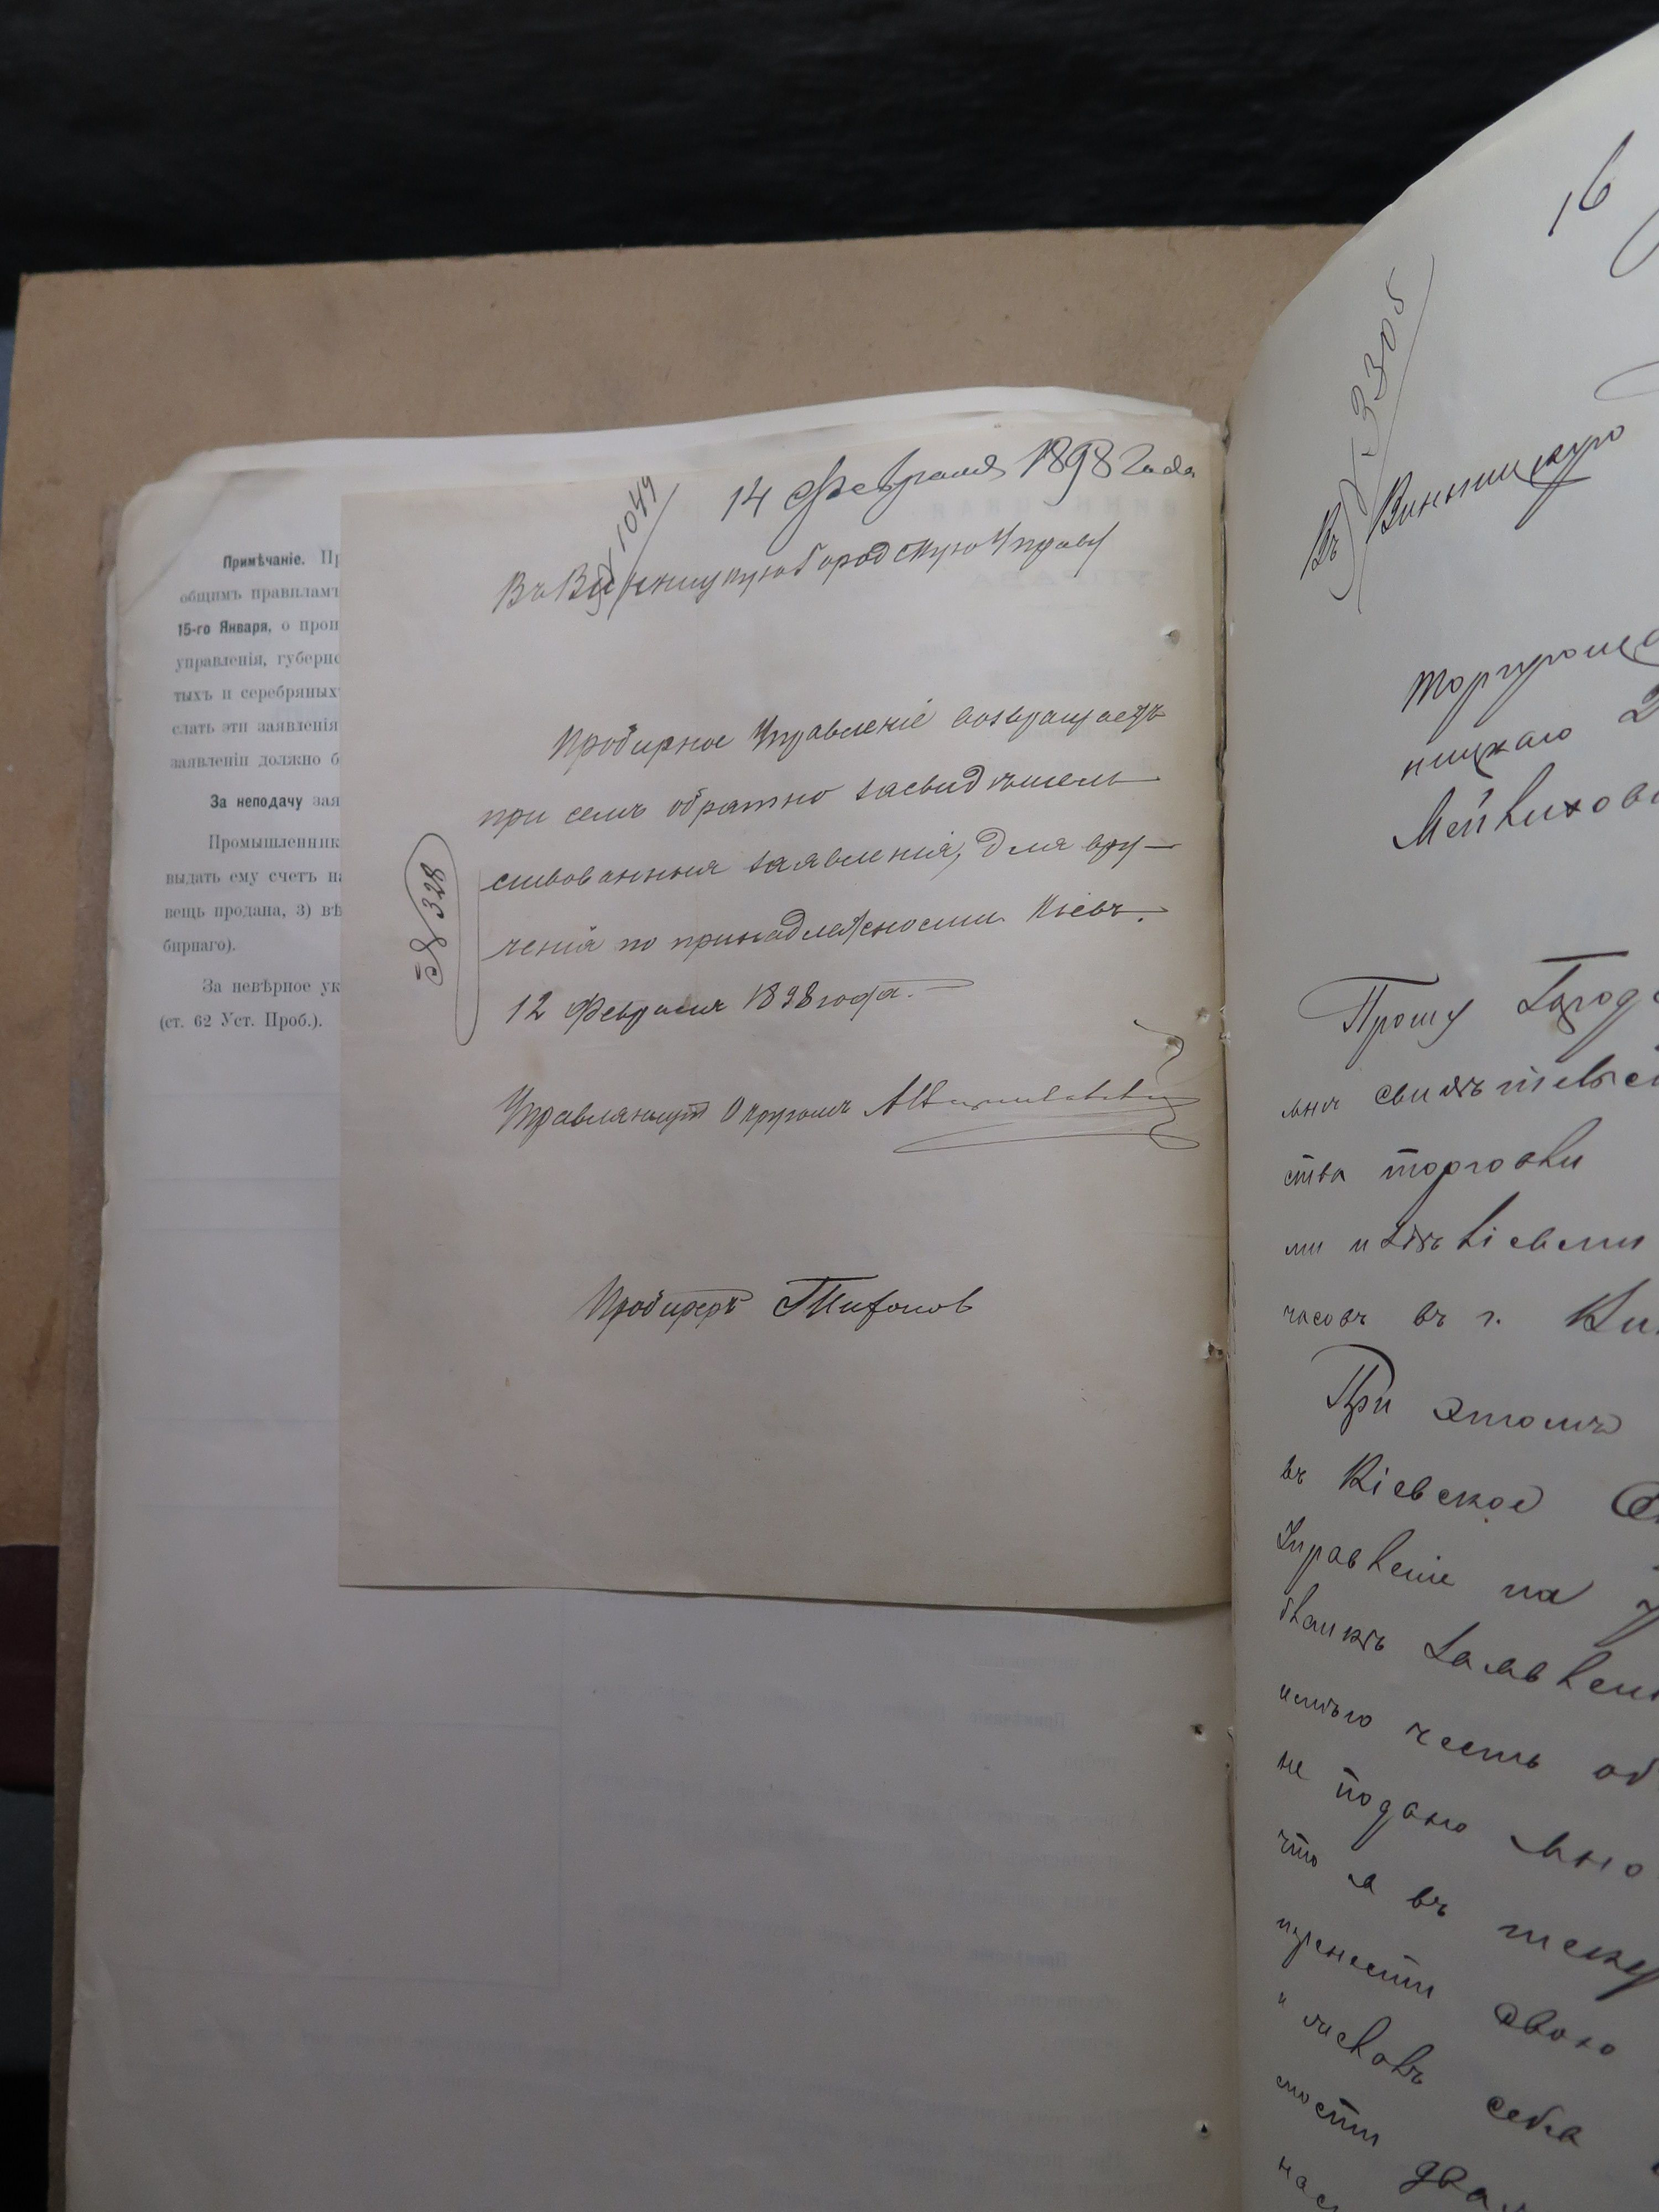 Примѣчаніе. Пр
общимъ правиламъ
15-го Января, о прои
управленія, губернс
тыхъ и серебряныхъ
слать эти заявленія
заявленіи должно б
За неподачу зая
Промышленник
выдать ему счетъ на
вещь продана, 3) вѣ
бирнаго).
За невѣрное ук
(ст. 62 Уст. Проб.).
14 Февраля 1898 Года
№ 1049
Въ Винницкую Городскую Управу
Пробирное Управленіе возвращаетъ
при семъ обратно засвидѣтель
ствованныя заявленія, для вру-
ченія по принадлежности. Кіевъ.
12 Февраля 1898 года.
№ 328
Управляющій Округомъ
Пробиреръ Тихонов
16
№ 3305
Въ Винницкую
торгующа
ницкаго 2
Мейлихови
Прошу Город
мнѣ свидѣтельс
ства торговли
ми издѣліями
часовъ въ г. Ви
При этомъ
въ Кіевское
Управленіе на
бланкѣ Заявлен
имѣю честь об
не подано мно
что я въ теку
пренести свою
и мѣсковъ себя
мости два